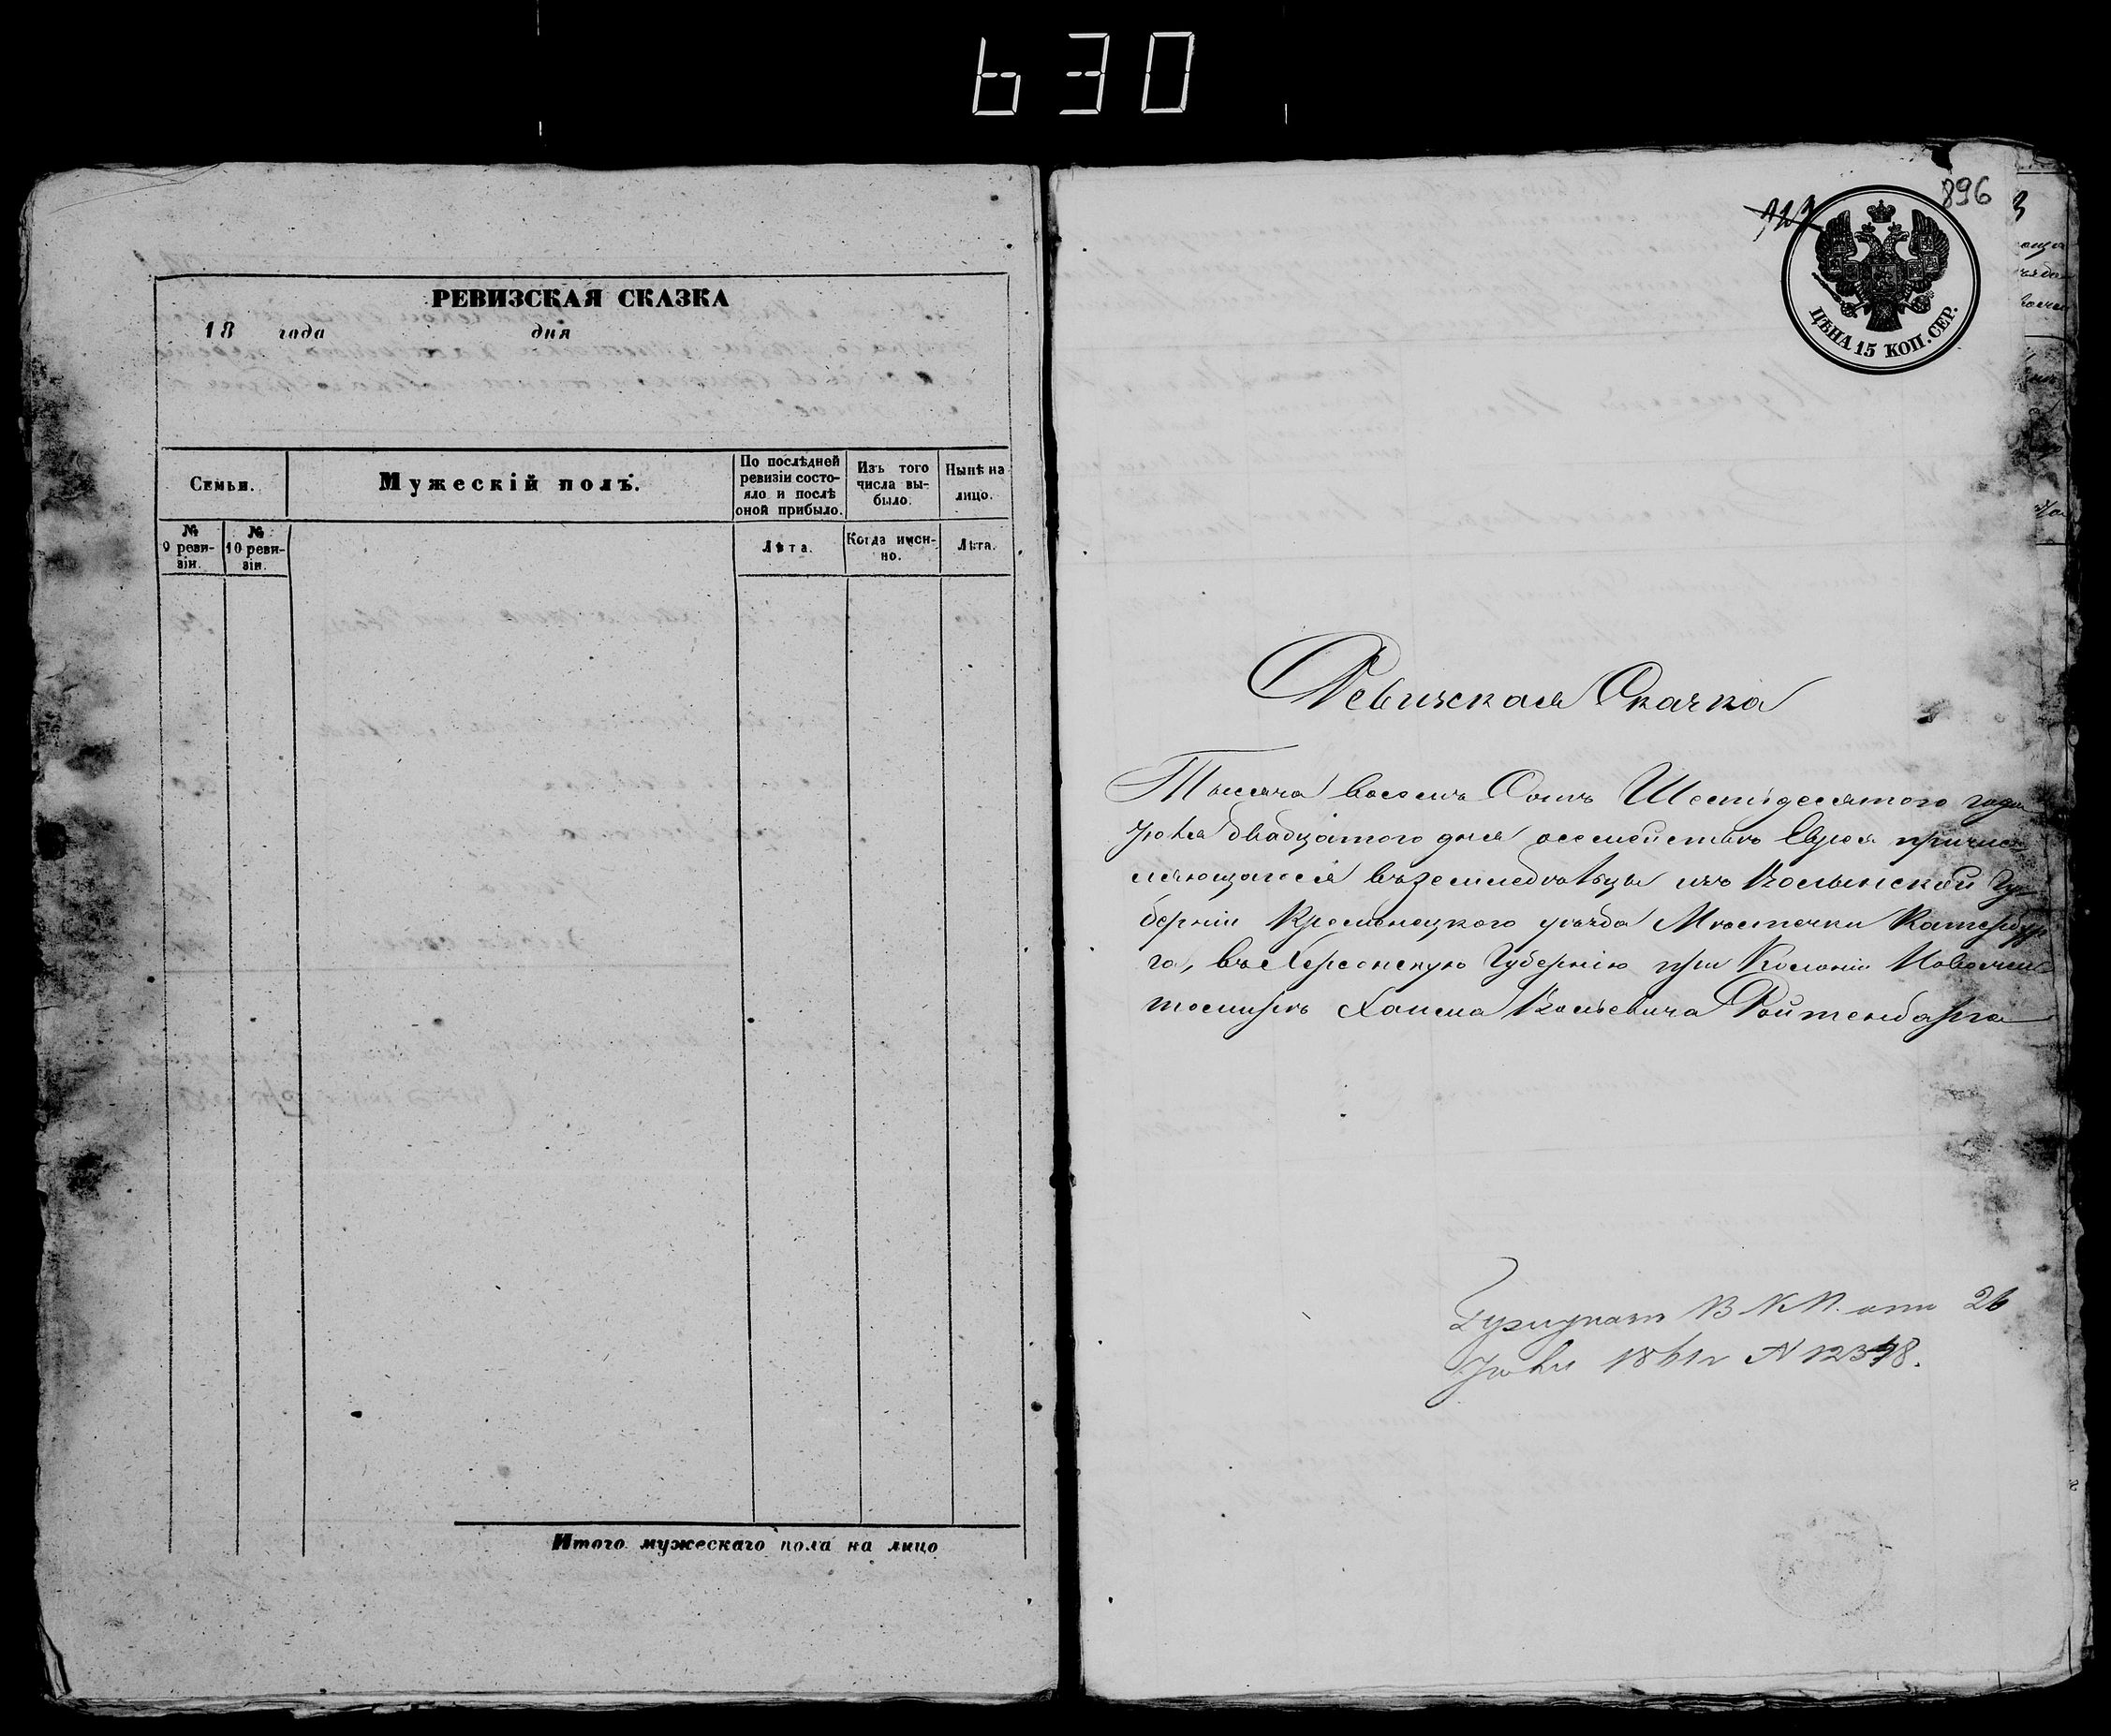 630
РЕВИЗСКАЯ СКАЗКА
18 года дня
Семьи.
Мужескій полъ.
По послѣдней ревизіи состояло и послѣ оной прибыло.
Изъ того числа выбыло.
Нынѣ на лицо.
№ 9 ревизіи.
№ 10 ревизіи.
Лѣта.
Когда именно.
Лѣта.
Итого мужескаго пола на лицо
896
ЦѢНА 15 КОП. СЕР.
Ревизская Сказка
Тысяча восемь Сотъ Шестьдесятого года
Іюля двадцатого дня осемействѣ Еврея причис
ляющагося въземледѣльцы изъ Волынской Гу
берніи Кременецкого уѣзда Мѣстечки Катербур
га, въ Херсонскую Губернію при Колоніи Новожи
томиръ Хаима Вольевича Ройтенбарга
В К П. отъ 26
Іюля 1861г N